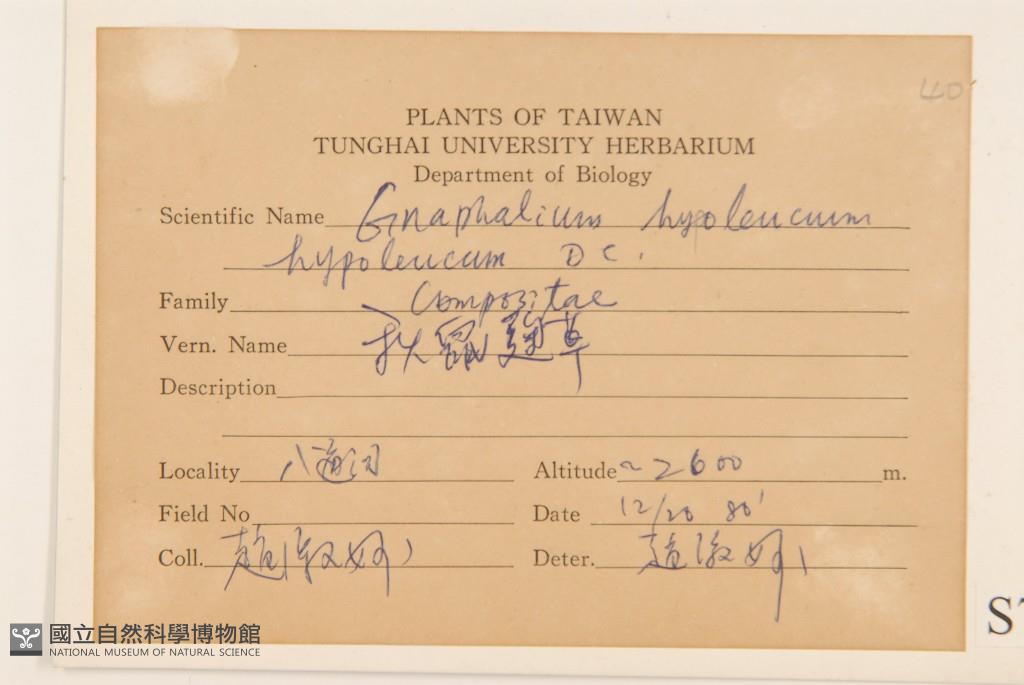 40
PLANTS OF TAIWAN
TUNGHAI UNIVERSITY HERBARIUM
Department of Biology
Scientific Name Gnaphalium hypoleucum
hypoleucum DC.
Family Compositae
Vern. Name 秋鼠麴草
Description
Locality 八通關
Altitude ~2600 m.
Field No
Date 12/20 80'
Coll. 趙淑妙
Deter. 趙淑妙
國立自然科學博物館
NATIONAL MUSEUM OF NATURAL SCIENCE